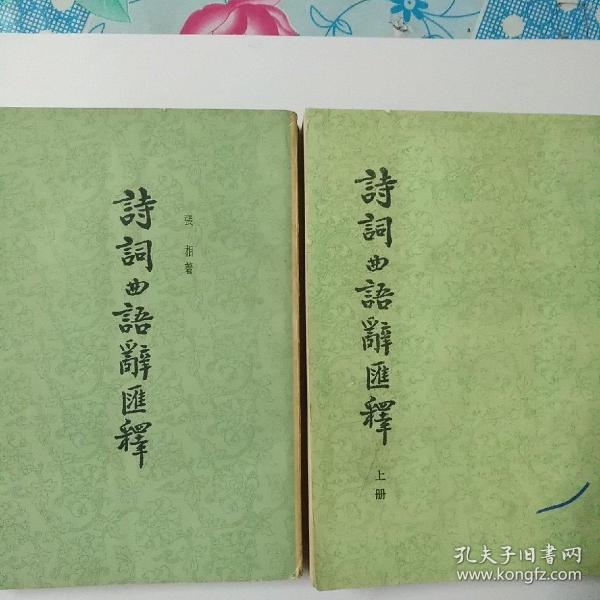 詩詞曲語辭匯釋
張相著
詩詞曲語辭匯釋
上册
孔夫子旧书网
www.kongfz.com